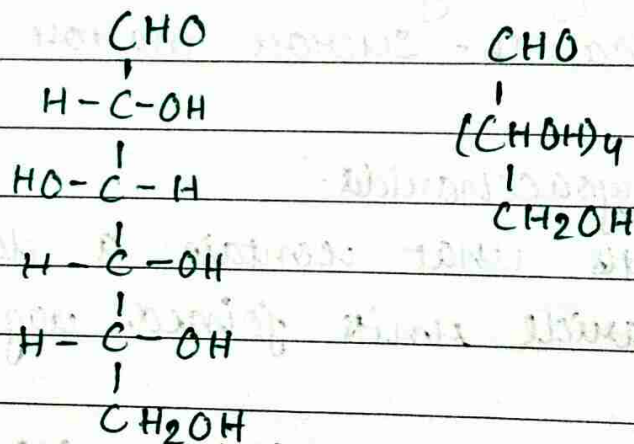 CHO
H-C-OH
HO-C-H
H-C-OH
H-C-OH
CH2OH
CHO
(CHOH)4
CH2OH